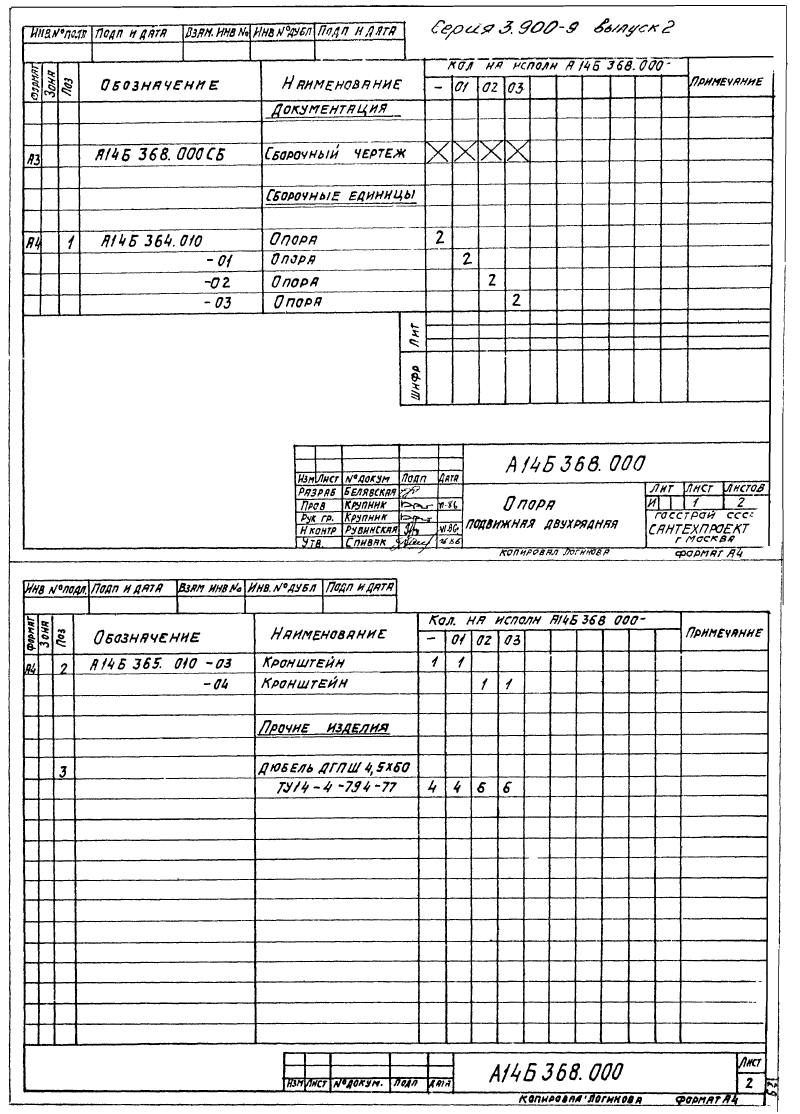 Серия 3.900-9 выпуск 2
Инв.№подл Подп и дата Взам. инв № Инв №дубл Подп и дата
Формат Зона Поз Обозначение Наименование Кол на исполн А14Б 368.000- Примечание
- 01 02 03
Документация
А3 А14Б 368.000СБ Сборочный чертеж X X X X
Сборочные единицы
А4 1 А14Б 364.010 Опора 2
-01 Опора 2
-02 Опора 2
-03 Опора 2
Лит
Шифр
А14Б 368.000
Изм Лист №докум Подп Дата
Разраб Белявская
Пров Крупник VI.86
Рук гр. Крупник
Н контр Рувинская VI.86
Утв. Спивак
Опора
подвижная двухрядная
Лит Лист Листов
И 1 2
Госстрой СССР
Сантехпроект
г Москва
Копировал Логинова Формат А4
Инв №подл. Подп и дата Взам инв № Инв. №дубл Подп и дата
Формат Зона Поз Обозначение Наименование Кол. на исполн А14Б 368 000- Примечание
- 01 02 03
А4 2 А14Б 365. 010 -03 Кронштейн 1 1
-04 Кронштейн 1 1
Прочие изделия
3 Дюбель ДГПШ 4,5x60
ТУ14-4-794-77 4 4 6 6
Изм Лист №докум. Подп Дата
А14Б 368.000
Лист
2
Копировал Логинова Формат А4